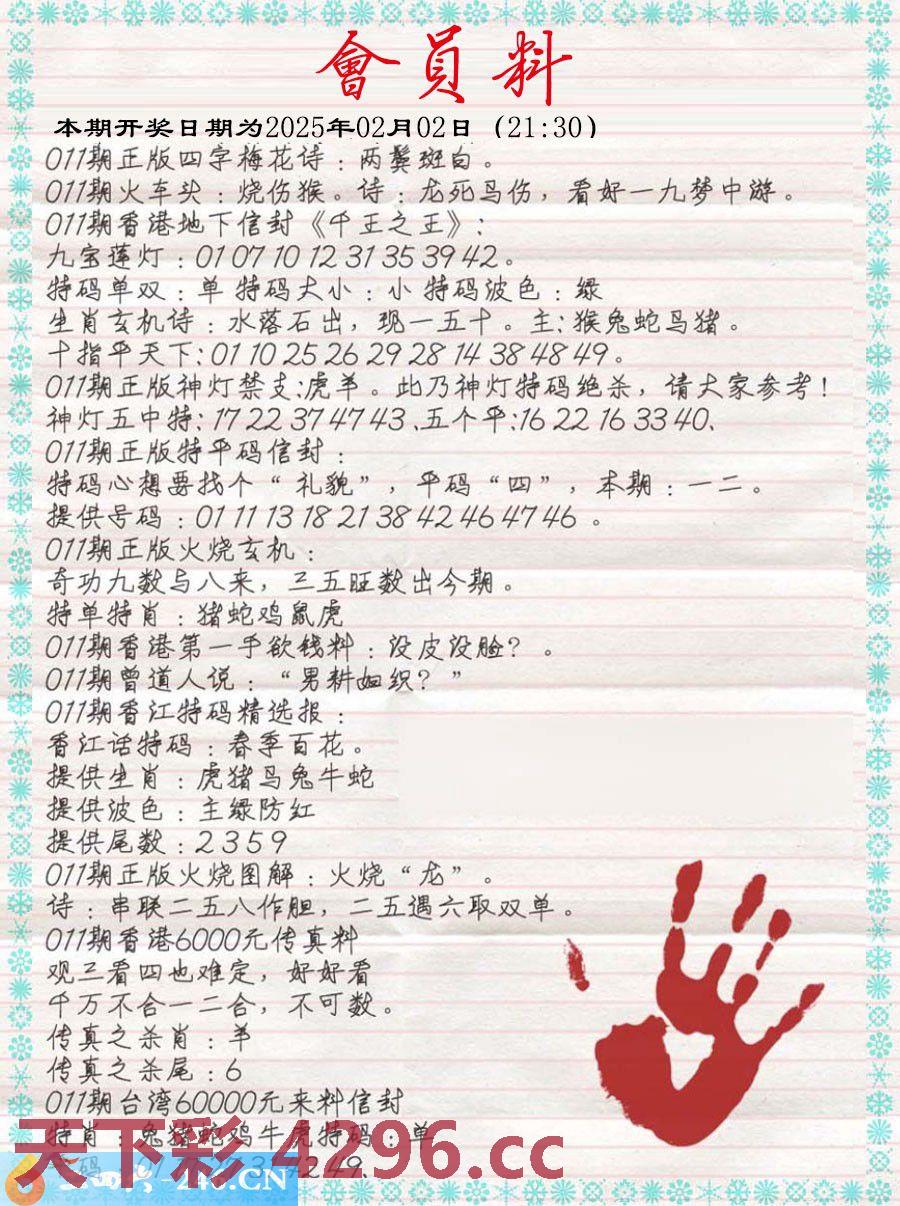 會員料
本期开奖日期为2025年02月02日（21:30）
011期正版四字梅花诗：两鬓斑白。
011期火车头：烧伤猴。诗：龙死鸟伤，看好一九梦中游。
011期香港地下信封《千王之王》：
九宝莲灯：01 07 10 12 31 35 39 42。
特码单双：单 特码大小：小 特码波色：绿
生肖玄机诗：水落石出，现一五十。主：猴兔蛇马猪。
十指平天下：01 10 25 26 29 28 14 38 48 49。
011期正版神灯禁支：虎羊。此乃神灯特码绝杀，请大家参考！
神灯五中特：17 22 37 47 43、五个平：16 22 16 33 40、
011期正版特平码信封：
特码心想要找个“礼貌”，平码“四”，本期：一二。
提供号码：01 11 13 18 21 38 42 46 47 46 。
011期正版火烧玄机：
奇功九数与八来，三五旺数出今期。
特单特肖：猪蛇鸡鼠虎
011期香港第一手欲钱料：没皮没脸？。
011期曾道人说：“男耕妞织？”
011期香江特码精选报：
香江话特码：春季百花。
提供生肖：虎猪马兔牛蛇
提供波色：主绿防红
提供尾数：2 3 5 9
011期正版火烧图解：火烧“龙”。
诗：串联二五八作胆，二五遇六取双单。
011期香港6000元传真料
观三看四也难定，好好看
千万不合一二合，不可数。
传真之杀肖：羊
传真之杀尾：6
011期台湾60000元来料信封
特肖：兔猪蛇鸡牛虎特码：单
天下彩 4296.cc
49、
246.CN